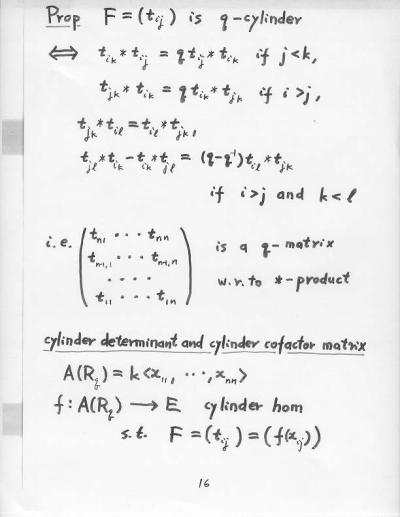 Prop F = (t_ij) is q-cylinder
⟺ t_ik * t_ij = q t_ij * t_ik if j < k,
t_jk * t_ik = q t_ik * t_jk if i > j,
t_jk * t_il = t_il * t_jk,
t_jl * t_ik - t_ik * t_jl = (q - q⁻¹) t_il * t_jk
if i > j and k < l
i.e. ( t_n1 ... t_nn
t_n-1,1 ... t_n-1,n is a q-matrix
.... w.r.to *-product
t_11 ... t_1n )
cylinder determinant and cylinder cofactor matrix
A(R_q) = k<x_11, ..., x_nn>
f : A(R_q) → E cylinder hom
s.t. F = (t_ij) = (f(x_ij))
16